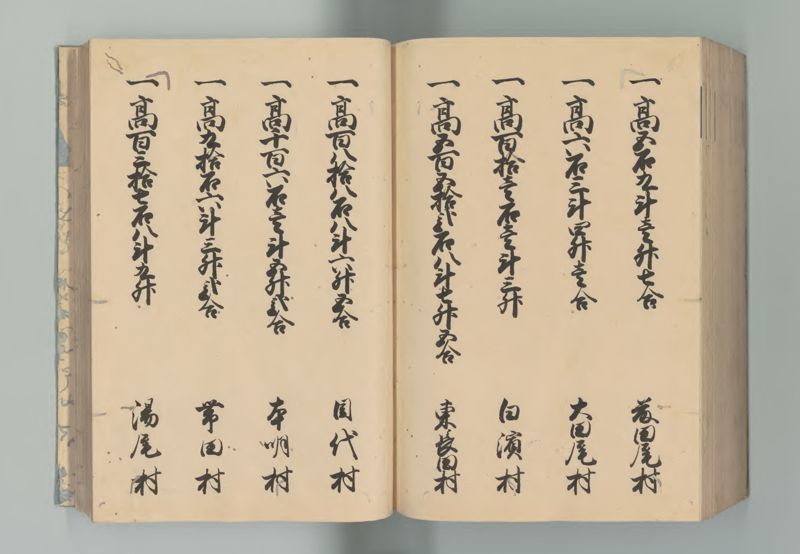 一高五石九斗壱升七合 菰田尾村
一高六石三斗四升壱合 大田尾村
一高百拾壱石壱斗三升 白濱村
一高五百五拾弐石八斗七升五合 東枝田村
一高百八拾八石八斗六升五合 田代村
一高千百六石壱斗五升弐合 本明村
一高九拾石六斗三升弐合 帯田村
一高百三拾七石八斗九升 湯尾村